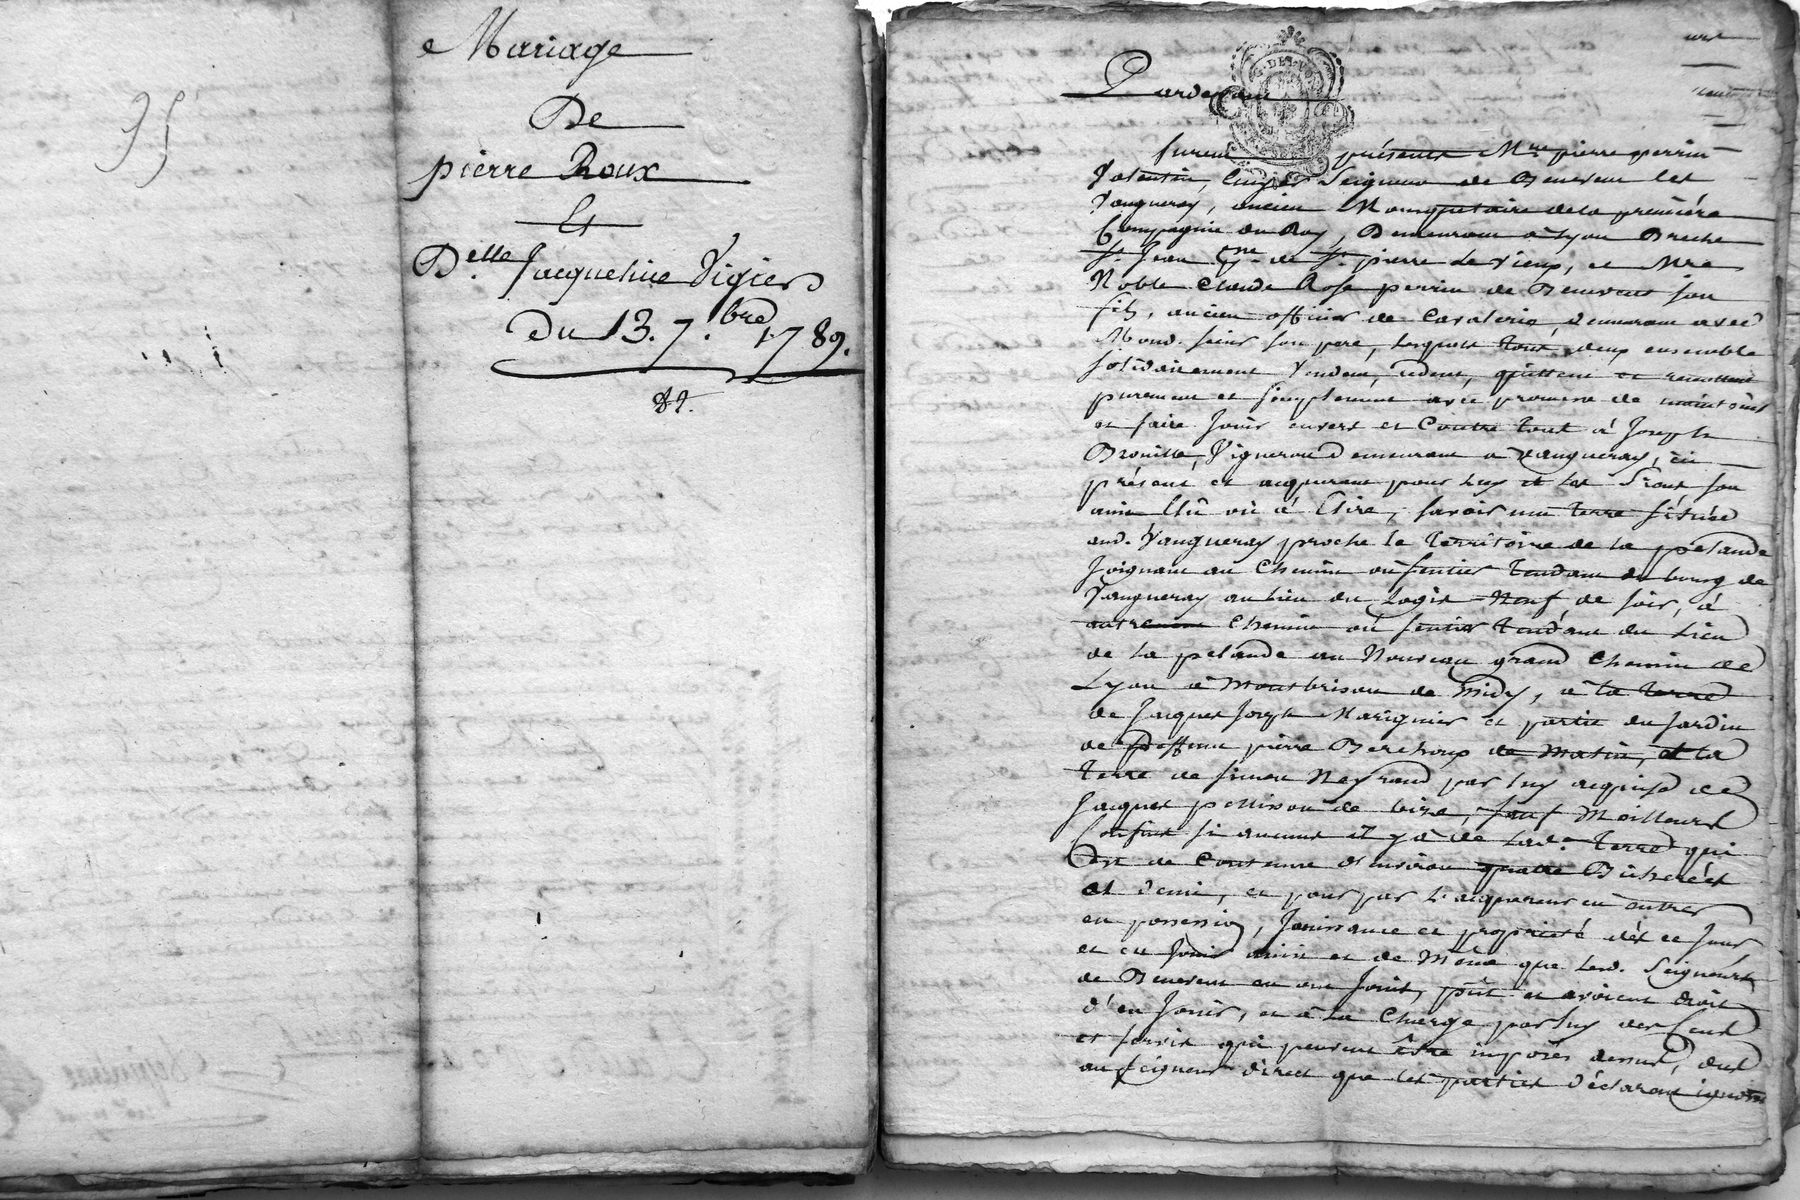 95
Mariage
De
pierre Roux
Et
Delle. Jacqueline Vigier
Du 13. 7.bre 1789.
Pardevant
furent présents Mre pierre perrin
Valentin, Seigneur de Benevent les
Vaugneray, ancien Mousquetaire de la première
Compagnie du Roy, Demeurant à Lyon Breche
St. Jean psse de St. pierre le vieux, et Mre
Noble Claude Rose perrin de Benevent son
fils, ancien officier de Cavalerie, demeurant avec
Mond. sieur son pere, lesquels tous deux ensemble
solidairement Vendent, cedent, quittent et remettent
purement et simplement avec promesse de maintenir
et faire Jouir envers et Contre tous à Joseph
Brouille, Vigneron Demeurant a Vaugneray, ici
présent et acquereur pour luy et les siens son
ami Elû ou à Elire, savoir une terre située
aud. Vaugneray proche le territoire de la pelande
Joignant au Chemin ou sentier tendant du bourg de
Vaugneray au lieu du Logis Neuf de soir, à
autre Chemin ou sentier tendant du Lieu
de la pelande au Nouveau grand Chemin de
Lyon à Montbrison de midy, à la terre
de Jacques Joseph Marignier et partie du Jardin
de deffunt pierre Berchoux de Matin, et la
terre de Simon Neyrand par luy acquise de
Jacques pellisson de bize, sauf Meilleurs
Confins si aucuns il y à de lad. terre qui
Est de Contenue d'environ quatre Bicherées
et demi, et pour par l'acquereur en entrer
en possession, Jouissance et propriété dès ce Jour
et en Jouir ainsi et de Même que lesd. Seigneurs
de Benevent en ont Jouit, pût et avoient droit
d'en Jouir, et à la Charge par luy des Cens
et servis qui peuvent être imposés dessus, dus
au seigneur direct que les parties déclarent ignorer